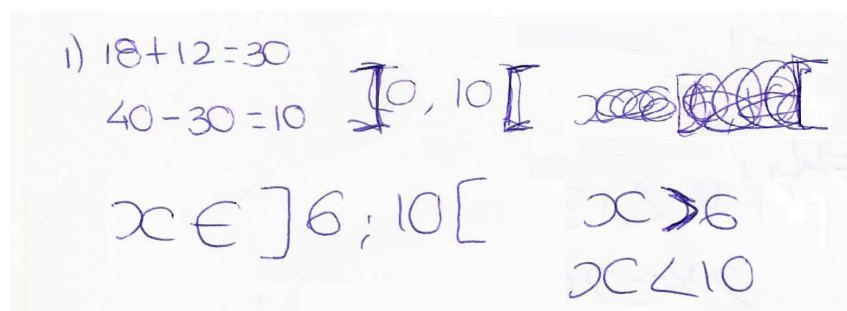 1) 18+12=30
40-30=10 ]0, 10[
x ∈ ]6 ; 10[
x > 6
x < 10